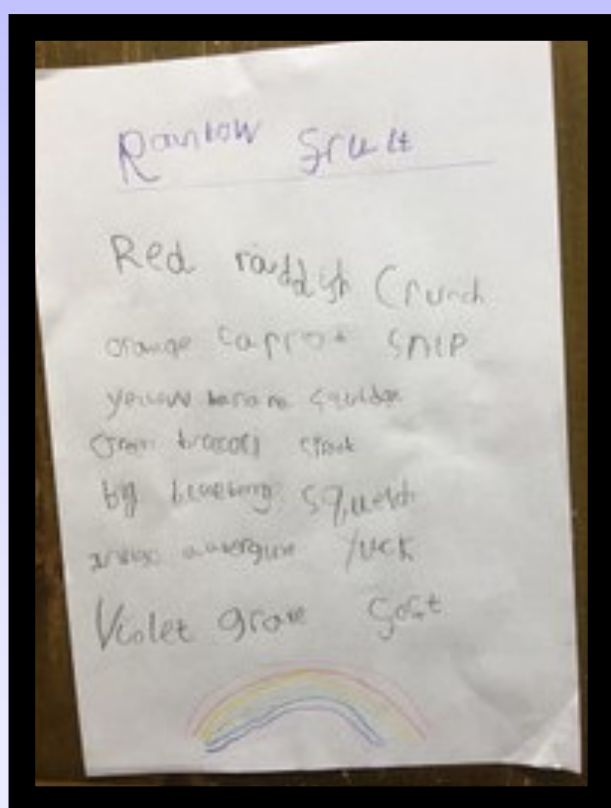 Rainbow Fruit
Red raddish Crunch
orange carrot snip
yellow banana squidge
Green broccoli
big blueberry squelch
indigo aubergine Yuck
Violet grape soft